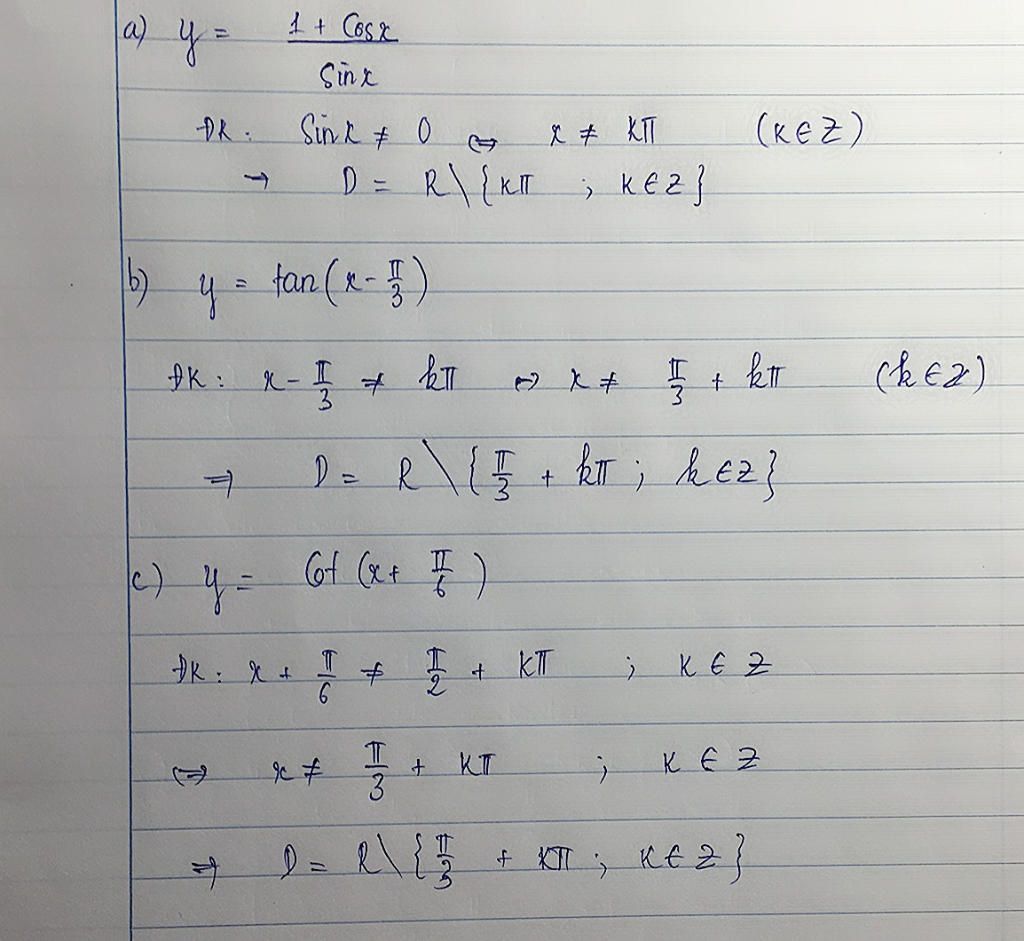 a) y = (1 + Cosx) / Sinx
ĐK: Sinx ≠ 0 ⇔ x ≠ kπ (k∈Z)
→ D = R\{kπ ; k∈Z}
b) y = tan(x - π/3)
ĐK: x - π/3 ≠ kπ ⇔ x ≠ π/3 + kπ (k∈Z)
⇒ D = R\{π/3 + kπ ; k∈Z}
c) y = Cot (x + π/6)
ĐK: x + π/6 ≠ π/2 + kπ ; k ∈ Z
⇔ x ≠ π/3 + kπ ; k ∈ Z
⇒ D = R\{π/3 + kπ ; k∈Z}